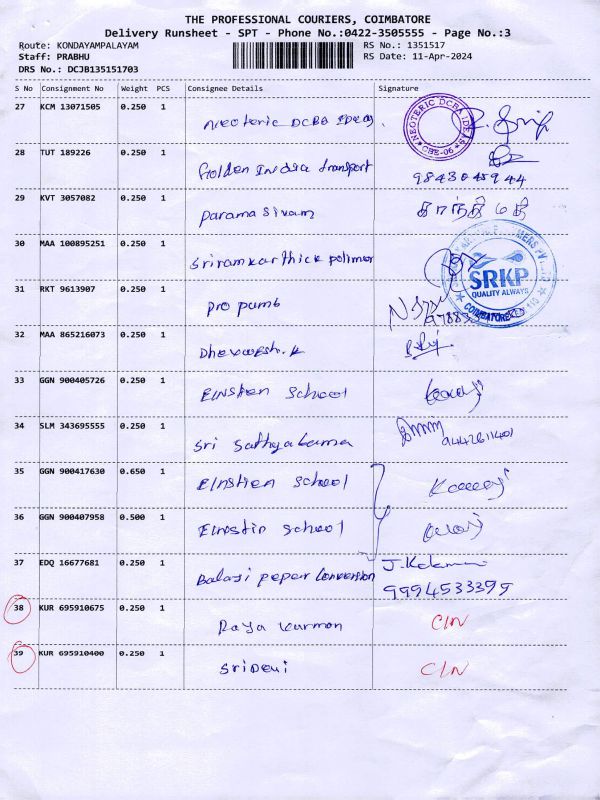 THE PROFESSIONAL COURIERS, COIMBATORE
Delivery Runsheet - SPT - Phone No.:0422-3505555 - Page No.:3
Route: KONDAYAMPALAYAM RS No.: 1351517
Staff: PRABHU RS Date: 11-Apr-2024
DRS No.: DCJB135151703
S No Consignment No Weight PCS Consignee Details Signature
27 KCM 13071505 0.250 1 Neoteric DCBA IDEAS
NEOTERIC DCBA IDEAS CBE-06
28 TUT 189226 0.250 1 Golden India transport
29 KVT 3057082 0.250 1 Parama Sivam
30 MAA 100895251 0.250 1 Sriramkarthick polimer
SRKP
QUALITY ALWAYS
COIMBATORE
31 RKT 9613907 0.250 1 Pro pumb
32 MAA 865216073 0.250 1
33 GGN 900405726 0.250 1 Einstien School
34 SLM 343695555 0.250 1 Sri Sathyabama
9442611401
35 GGN 900417630 0.650 1 Einstien School
36 GGN 900407958 0.500 1 Einstin School
37 EDQ 16677681 0.250 1 Balaji peper Conversion
9994533399
38 KUR 695910675 0.250 1 Raja Kurmon CIN
39 KUR 695910400 0.250 1 SriDevi CIN